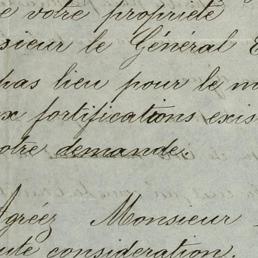 e votre propriété
sieur le Général
pas lieu pour le m
x fortifications exis
otre demande.
Agréez Monsieur
ute consideration.